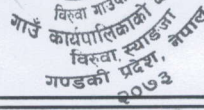 बिरुवा गाउँ
गाउँ कार्यपालिकाको
बिरुवा, स्याङजा
गण्डकी प्रदेश, नेपाल
२०७३